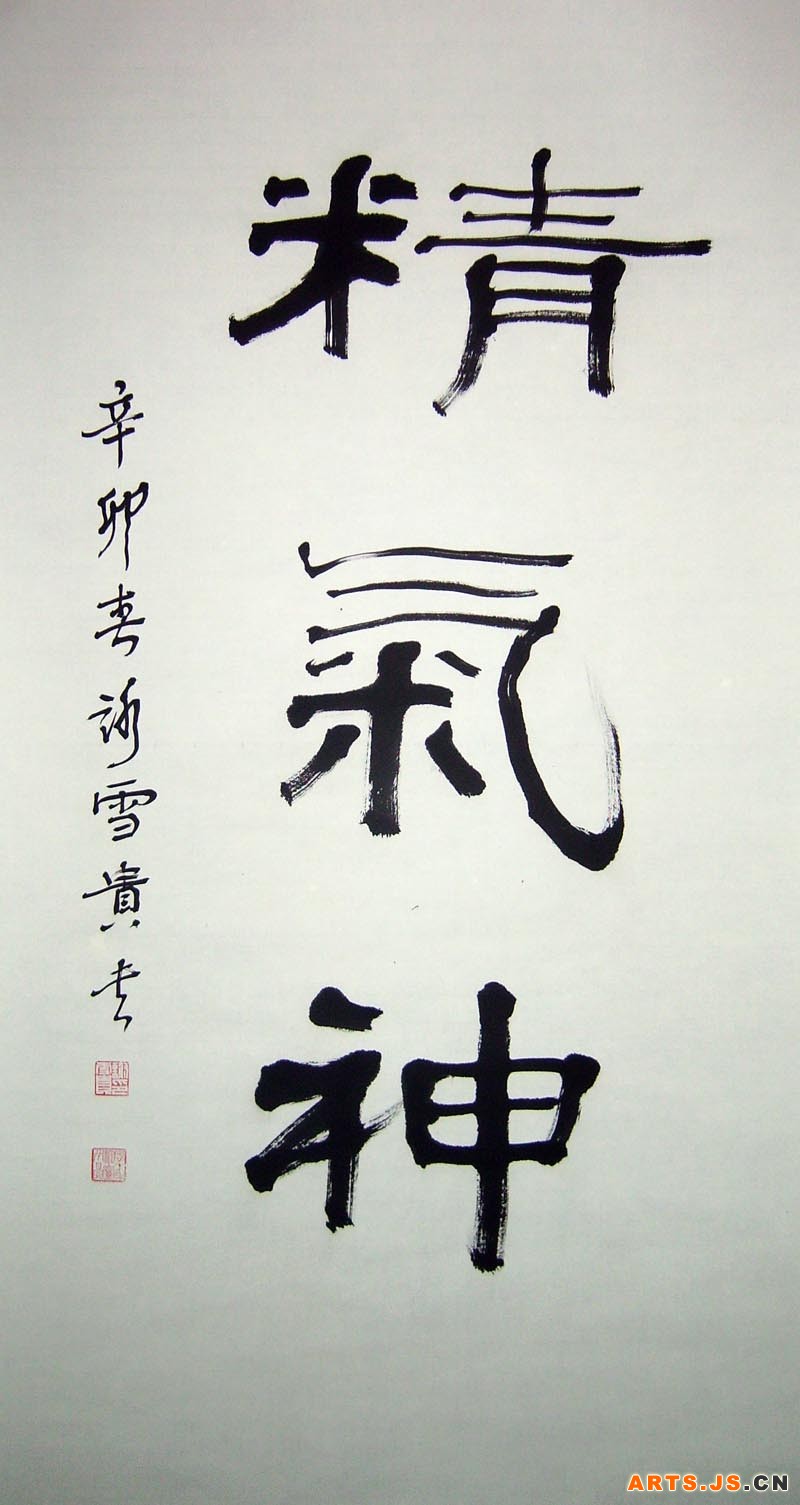 精氣神
辛卯春詠雪貴書
ARTS.JS.CN